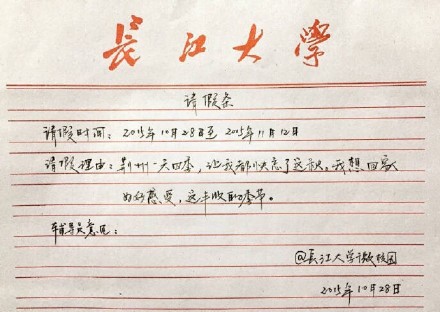 長江大學
请假条
请假时间：2015年10月28日至 2015年11月12日
请假理由：荆州一天四季，让我都快忘了这秋。我想回家
好好感受，这丰收的季节。
辅导员意见：
@长江大学微校园
2015年10月28日